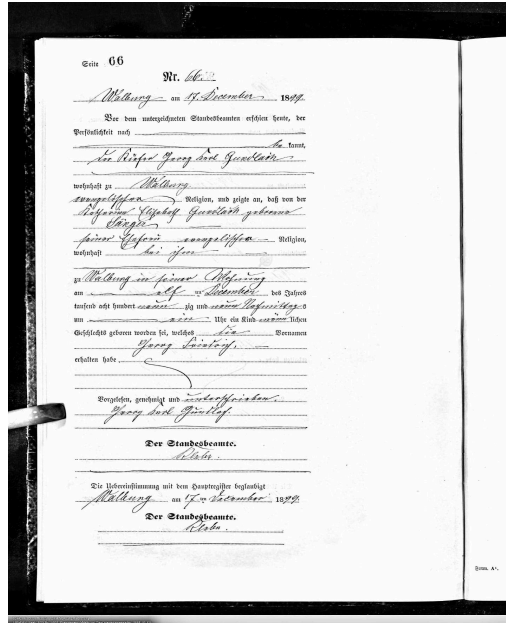 Seite 66
Nr. 66
Walburg am 17. December 1899.
Vor dem unterzeichneten Standesbeamten erschien heute, der
Persönlichkeit nach
be kannt,
der Küfer Georg Karl Gundlach
wohnhaft zu Walburg
evangelischer Religion, und zeigte an, daß von der
Katharina Elisabeth Gundlach geborene
Sänger
seiner Ehefrau evangelischer Religion,
wohnhaft bei ihm
zu Walburg in seiner Wohnung
am elf ten December des Jahres
tausend acht hundert neun zig und neun Nachmittags
um ein Uhr ein Kind männlichen
Geschlechts geboren worden sei, welches die Vornamen
Georg Friedrich,
erhalten habe.
Vorgelesen, genehmigt und unterschrieben.
Georg Karl Gundlach.
Der Standesbeamte.
Die Uebereinstimmung mit dem Hauptregister beglaubigt
Walburg am 17 ten December 1899.
Der Standesbeamte.
Form. A¹.